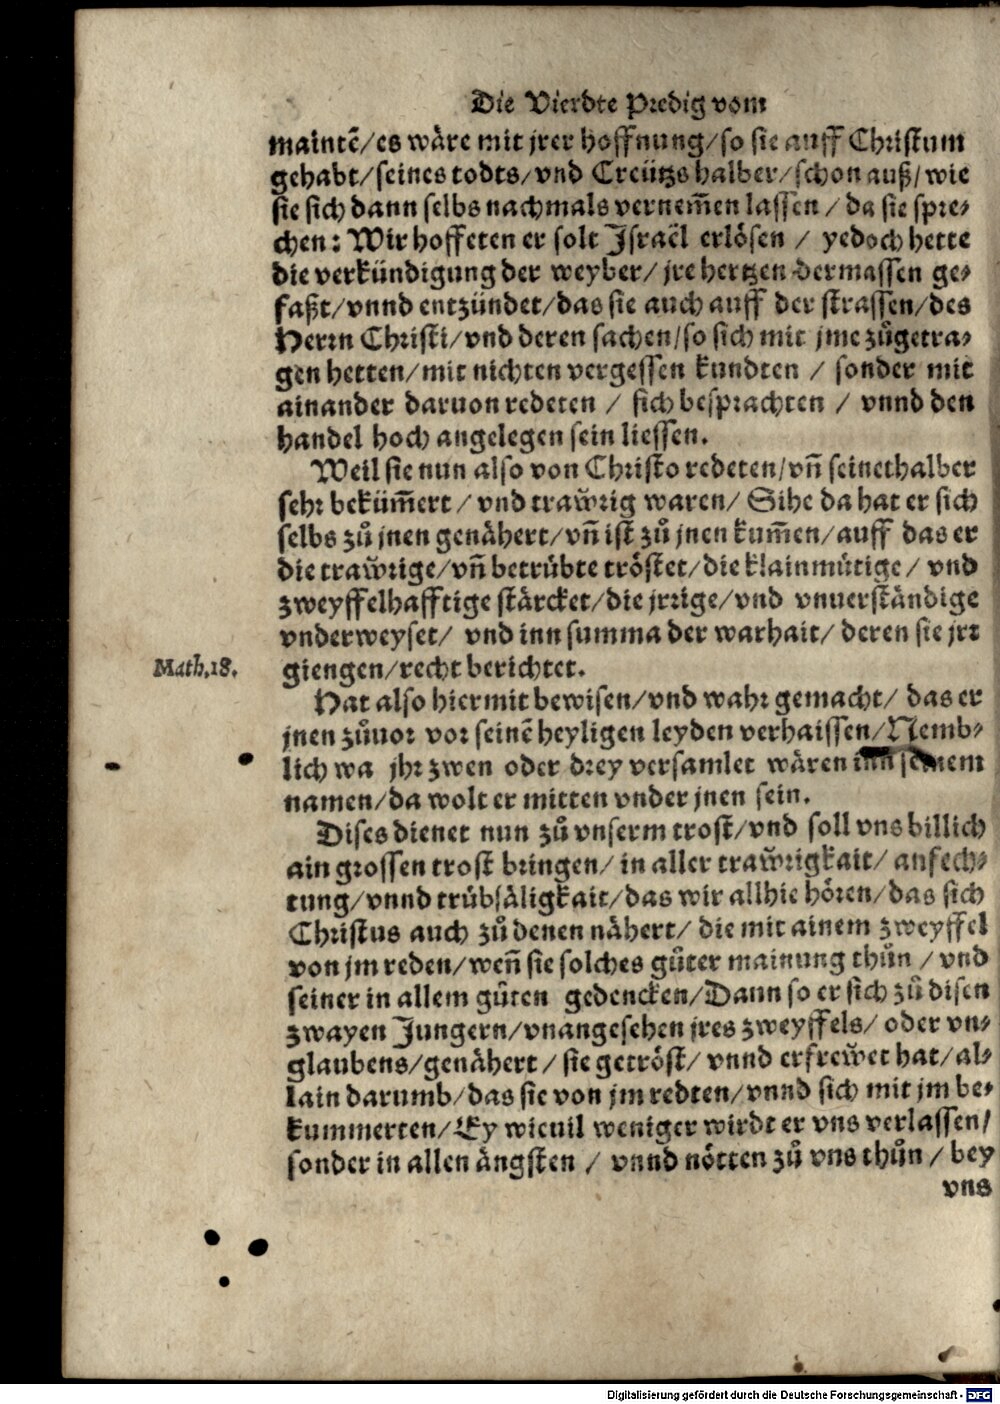 Die Vierdte Predig vom
maintẽ/es wäre mit jrer hoffnung/so sie auff Christum
gehabt/seines todts/vnd Creützs halber/schon auß/wie
sie sich dann selbs nachmals vernem̃en lassen / da sie spre-
chen: Wir hoffeten er solt Israël erlösen / yedoch hette
die verkündigung der weyber/ jre hertzen dermassen ge-
faßt/vnnd entzündet/das sie auch auff der strassen/des
Herrn Christi/vnd deren sachen/so sich mit jme zůgetra-
gen hetten/mit nichten vergessen kundten / sonder mit
ainander daruon redeten / sich besprachten / vnnd den
handel hoch angelegen sein liessen.
Weil sie nun also von Christo redeten/vñ seinethalber
sehr beküm̃ert / vnd trawrig waren/ Sihe da hat er sich
selbs zů jnen genähert/vñ ist zů jnen kum̃en/auff das er
die trawrige/vñ betrübte tröstet/die klainmütige / vnd
zweyffelhafftige stärcket/die jrrige/vnd vnuerständige
vnderweyset/ vnd inn summa der warhait/ deren sie jrr
Math.18.
giengen/recht berichtet.
Hat also hiermit bewisen/vnd wahr gemacht/ das er
jnen zůuor vor seinẽ heyligen leyden verhaissen/Nemb-
lich wa jhr zwen oder drey versamlet wären inn seinem
namen/da wolt er mitten vnder jnen sein.
Dises dienet nun zů vnserm trost/vnd soll vns billich
ain grossen trost bringen/ in aller trawrigkait/ anfech-
tung/vnnd trübsäligkait/das wir allhie hören/das sich
Christus auch zů denen nähert/ die mit ainem zweyffel
von jm reden/weñ sie solches gůter mainung thůn / vnd
seiner in allem gůten gedencken/Dann so er sich zů disen
zwayen Jungern/vnangesehen jres zweyffels/ oder vn-
glaubens/genähert / sie getröst/ vnnd erfrewet hat/ al-
lain darumb/das sie von jm redten/vnnd sich mit jm be-
kummerten/Ey wieuil weniger wirdt er vns verlassen/
sonder in allen ängsten / vnnd nötten zů vns thůn / bey
vns
Digitalisierung gefördert durch die Deutsche Forschungsgemeinschaft - DFG